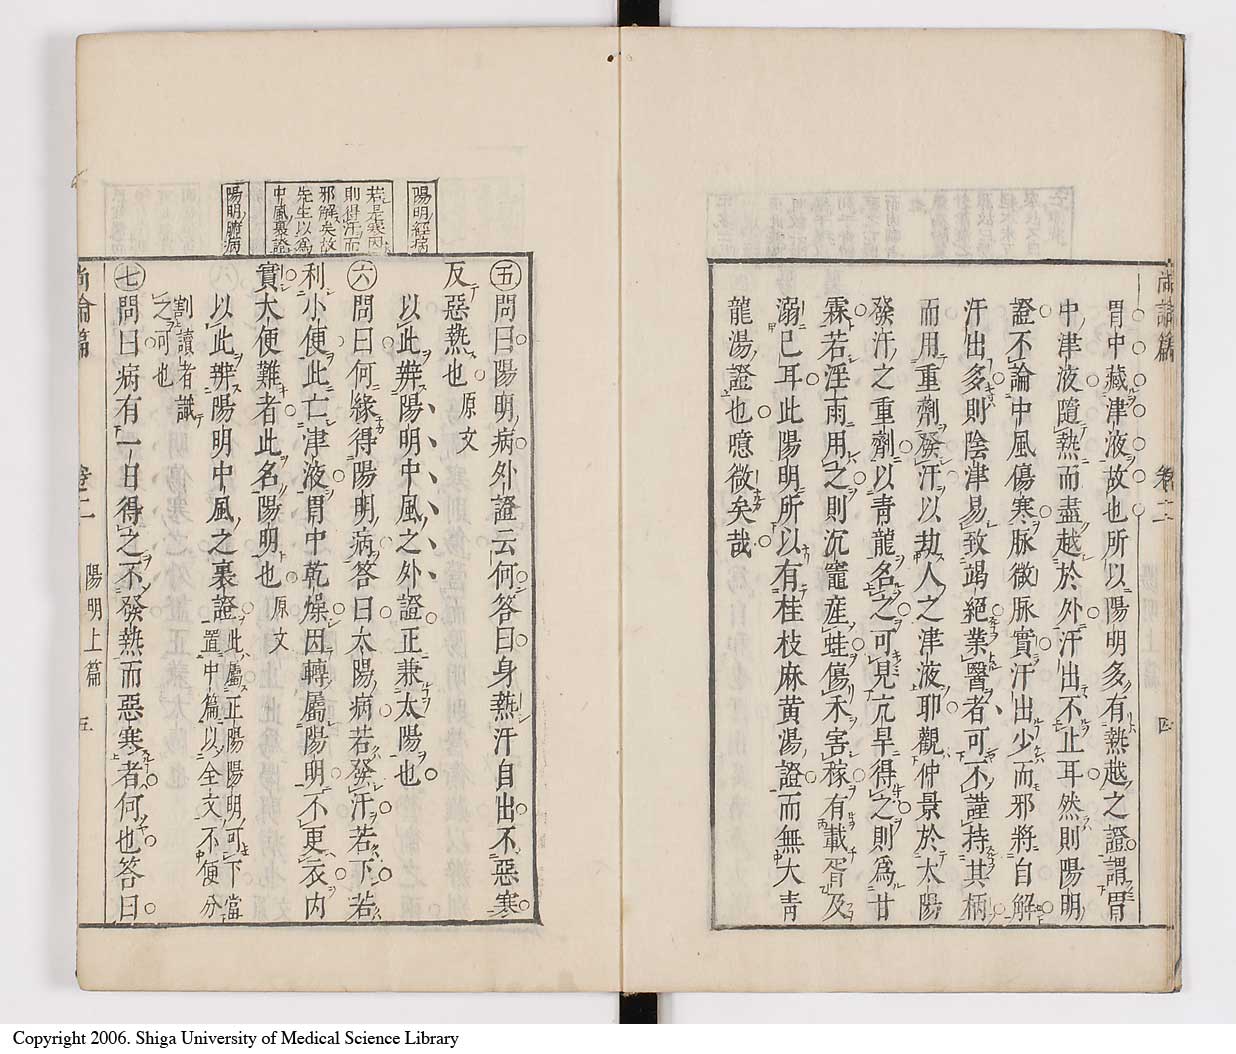 尚論篇 卷二 陽明上篇 四
胃中藏津液故也所以陽明多有熱越之證謂胃
中津液隨熱而盡越於外汗出不止耳然則陽明
證不論中風傷寒脉微脉實汗出少而邪將自解
汗出多則陰津易致竭絕業醫者可不謹持其柄
而用重劑發汗以劫人之津液耶觀仲景於太陽
發汗之重劑以青龍名之可見亢旱得之則為甘
霖若淫雨用之則沉竈産蛙傷禾害稼有載胥及
溺已耳此陽明所以有桂枝麻黃湯證而無大青
龍湯證也噫微矣哉
陽明經病
五問曰陽明病外證云何答曰身熱汗自出不惡寒
反惡熱也 原文
若是寒因
則得汗而
邪解矣故
先生以為
中風裏證
以此辨陽明中風之外證正兼太陽也
六問曰何緣得陽明病答曰太陽病若發汗若下若
利小便此亡津液胃中乾燥因轉屬陽明不更衣内
實大便難者此名陽明也 原文
陽明腑病
以此辨陽明中風之裏證此屬正陽陽明可下當
置中篇以全文不便分
割讀者識
之可也
七問曰病有一日得之不發熱而惡寒者何也答曰
尚論篇 卷二 陽明上篇 五
Copyright 2006. Shiga University of Medical Science Library